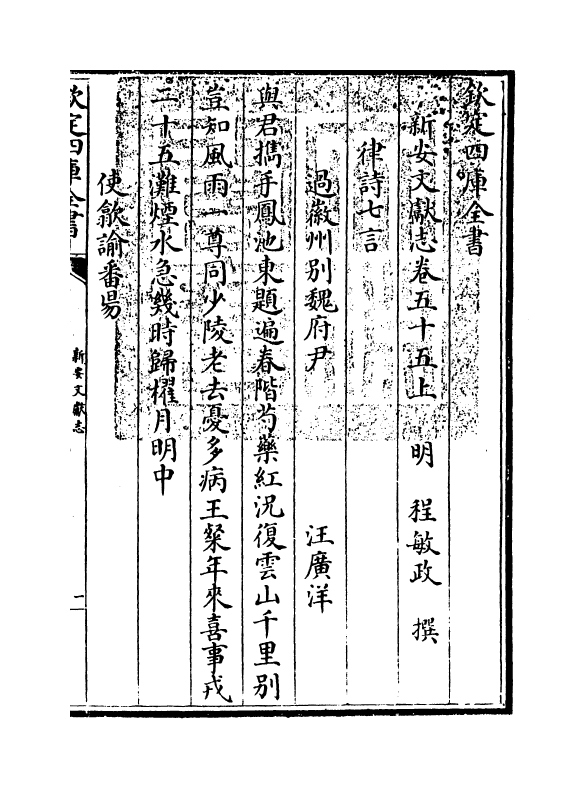 欽定四庫全書
新安文獻志卷五十五上　明　程敏政　撰
律詩七言
過徽州別魏府尹　汪廣洋
與君攜手鳳池東題遍春階芍藥紅況復雲山千里别
豈知風雨一尊同少陵老去憂多病王粲年來喜事戎
三十五灘煙水急幾時歸櫂月明中
使歙諭番昜
欽定四庫全書
新安文獻志
二